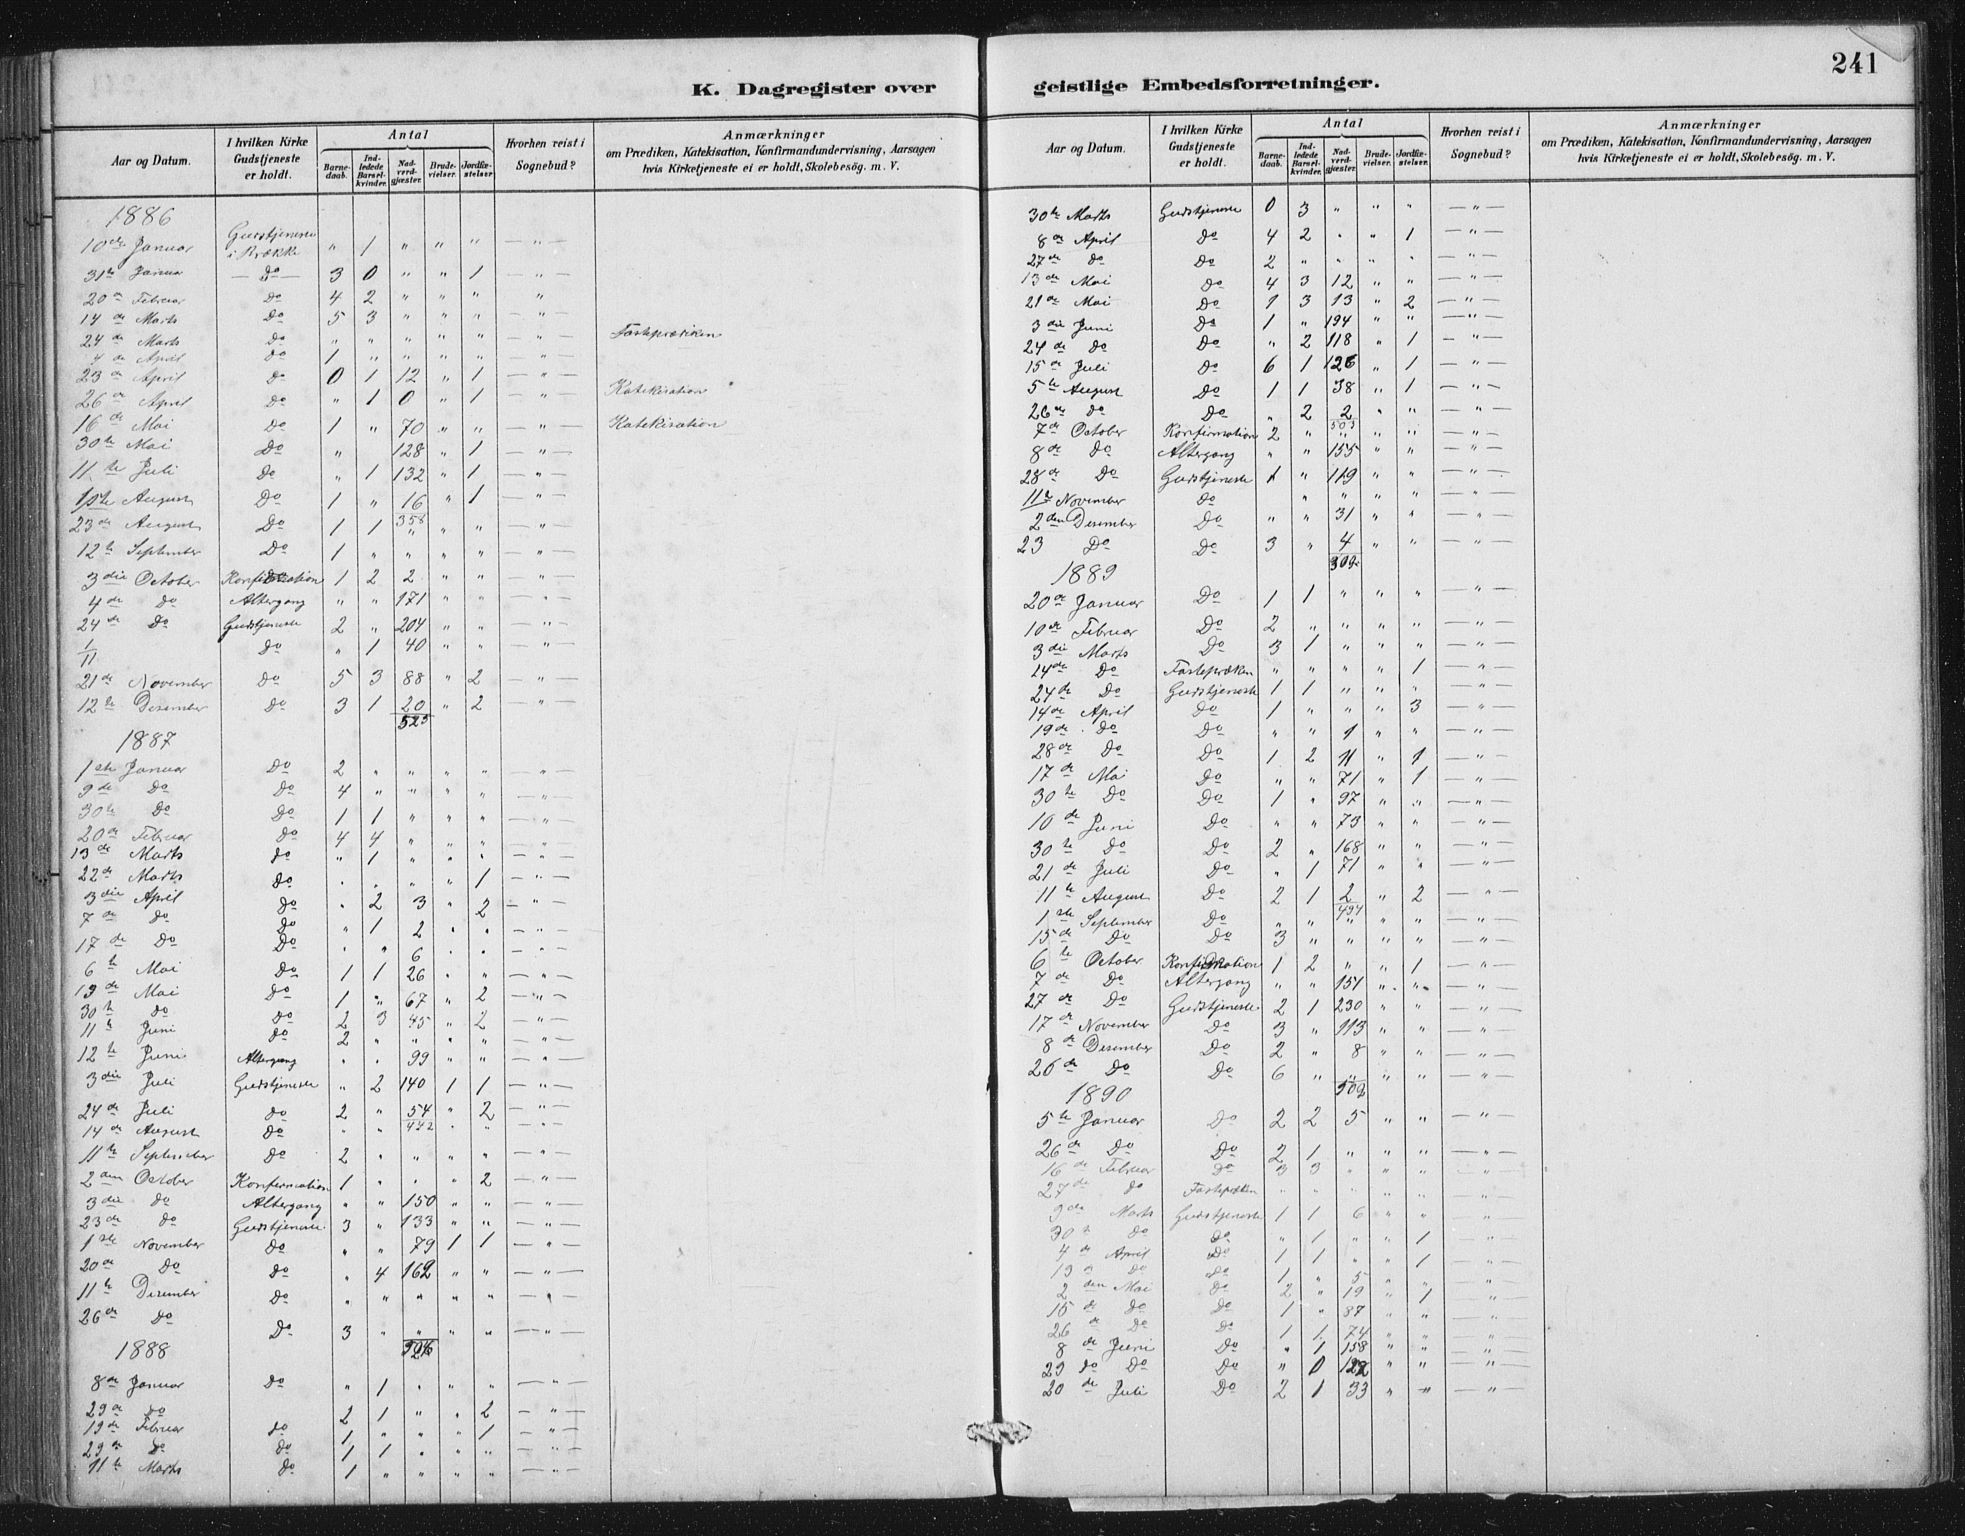 241
K. Dagregister over geistlige Embedsforretninger.
Aar og Datum. I hvilken Kirke Gudstjeneste er holdt. Antal Barnedaab. Indledede Barselkvinder. Nadverdgjæster. Brudevielser. Jordfæstelser. Hvorhen reist i Sognebud? Anmærkninger om Prædiken, Katekisation, Konfirmandundervisning, Aarsagen hvis Kirketjeneste ei er holdt, Skolebesög. m. V.
1886
10de Januar Gudstjeneste i Krække " 1 " " " — " —
31te Janua — Do — 3 0 " " 1 — " —
20de Februar Do 4 2 " " " "
14de Marts Do 5 3 " " " — " —
24de Marts Do " " " " " — " — Fasteprædiken
4de April Do 1 " " " " — " —
23de April Do 0 1 12 " 1 — " —
26de April Do " 1 0 " 1 — " — Katekisation
16de Mai Do 1 " 70 " " — " — Katekisation
30te Mai Do " 128 " 1 — " —
11te Juli Do " 1 132 " 1 — " —
1ste August Do 1 " 16 " 1 — " —
358
23de August Do 1 1 " " " — " —
12te September Do 1 " " " " — " —
3die October Konfirmation 1 2 2 " " — " —
4de Do Altergang " " 171 " " — " —
24de Do Gudstjeneste 2 " 204 " " — " —
1/11 Do " 1 40 " " — " —
21de November Do 5 3 88 " 2 — " —
12te Desember Do 3 1 20 " 2 — " —
525
1887
1ste Januar Do 2 " " " " — " —
9de Do Do 4 " " " " — " —
30te Do Do 1 1 " " " — " —
20de Februar Do 4 4 " " " — " —
13de Marts Do " 1 " " " — " —
22de Marts Do " " " " 1 — " —
3die April Do " 2 3 " 2 — " —
7de Do Do " 1 2 " " — " —
17de Do Do " " 6 " " — " —
6te Mai Do 1 1 26 " " — " —
19de Mai Do 1 " 67 " 2 — " —
30te Do Do 2 3 45 " 2 — " —
11te Juni Do 2 " " " " — " —
12te Juni Altergang " " 99 " " — " —
3die Juli Gudstjeneste " 2 140 1 1 — " —
24de Juli Do 2 " 54 " 2 — " —
442
14de August Do " " " " — " —
11te September Do 2 " " " " — " —
2den October Konfirmation 1 " " " 2 — " —
3die Do Altergang " " 150 " " — " —
23de Do Gudstjeneste 3 " 133 " " — " —
1ste November Do " " 79 1 1 — " —
20de Do Do " 4 162 " " — " —
11te Desember Do " " " " " — " —
26de Do Do 3 " " " " — " —
1888
8de Januar Do " 1 " " " — " —
29de Do 2 1 " " 2 — " —
19de Februar Do 1 " " " 1 — " —
29de Do Do 1 1 " " " — " —
11te Marts Do 1 " " " " — " —
Aar og Datum. I hvilken Kirke Gudstjeneste er holdt. Antal Barnedaab. Indledede Barselkvinder. Nadverdgjæster. Brudevielser. Jordfæstelser. Hvorhen reist i Sognebud? Anmærkninger om Prædiken, Katekisation, Konfirmandundervisning, Aarsagen hvis Kirketjeneste ei er holdt, Skolebesög. m. V.
30te Marts Gudstjeneste 0 3 " " " — " —
8de April Do 4 2 " " 1 — " —
27de Do Do 2 " " " " — " —
13de Mai Do 4 3 12 " " — " —
21de Mai Do 1 3 13 " 2 — " —
3die Juni Do 1 " 194 " " — " —
24de Do Do " 2 118 " 1 — " —
15de Juli Do 6 1 126 " 1 — " —
5te August Do 1 1 38 " 1 — " —
26de Do Do " 2 2 " " — " —
503
7de October Konfirmation 2 " " " " — " —
8de Do Altergang " " 155 " " — " —
28de Do Gudstjeneste 1 " 119 " " — " —
11te November Do " " " " — " —
2den Desember Do " " 31 " " — " —
23 Do Do 3 " 4 " " — " —
309
1889
20de Januar Do 1 1 " " " — " —
10de Februar Do 2 " " " " — " —
3die Marts Do 3 1 " " " — " —
14de Do Fastepræken " " " " 1 — " —
24de Do Gudstjeneste 1 1 " " " — " —
14de April Do 1 " " " 3 — " —
19de Do Do " " 1 " " — " —
28de Do Do 1 2 11 " 1 — " —
17de Mai Do " " 71 " 1 — " —
30te Do Do 1 " 97 " " — " —
10de Juni Do " " 73 " " — " —
30te Do Do 2 " 168 " " — " —
21de Juli Do " 1 71 " " — " —
11te August Do 2 1 2 " 2 — " —
494
1ste September Do " " " " " — " —
15de Do Do 3 " " " " — " —
6te October Konfirmation 1 2 " " 1 — " —
7de Do Altergang " " 151 " " — " —
27de Do Gudstjeneste 2 1 230 " " — " —
17de November Do 3 " 113 " " — " —
8de Desember Do 2 " 8 " " — " —
26de Do Do 6 " " " " — " —
502
1890
5te Januar Do 2 2 5 " " — " —
26de Do Do 2 1 " " " — " —
16de Februar Do 3 3 " " " — " —
27de Do Fastepræken " " " " " — " —
9de Marts Gudstjeneste 1 1 6 " " — " —
30te Do Do " 1 " " 1 — " —
4de April Do 1 1 " " 1 — " —
19de Do Do 1 " 5 " " — " —
2den Mai Do 2 " 19 " 1 — " —
15de Do Do 1 " 87 " " — " —
26de Do Do 1 1 74 " " — " —
8de Juni Do " 1 158 " " — " —
29de Do Do " 0 122 " " — " —
20de Juli Do 2 1 33 " " — " —